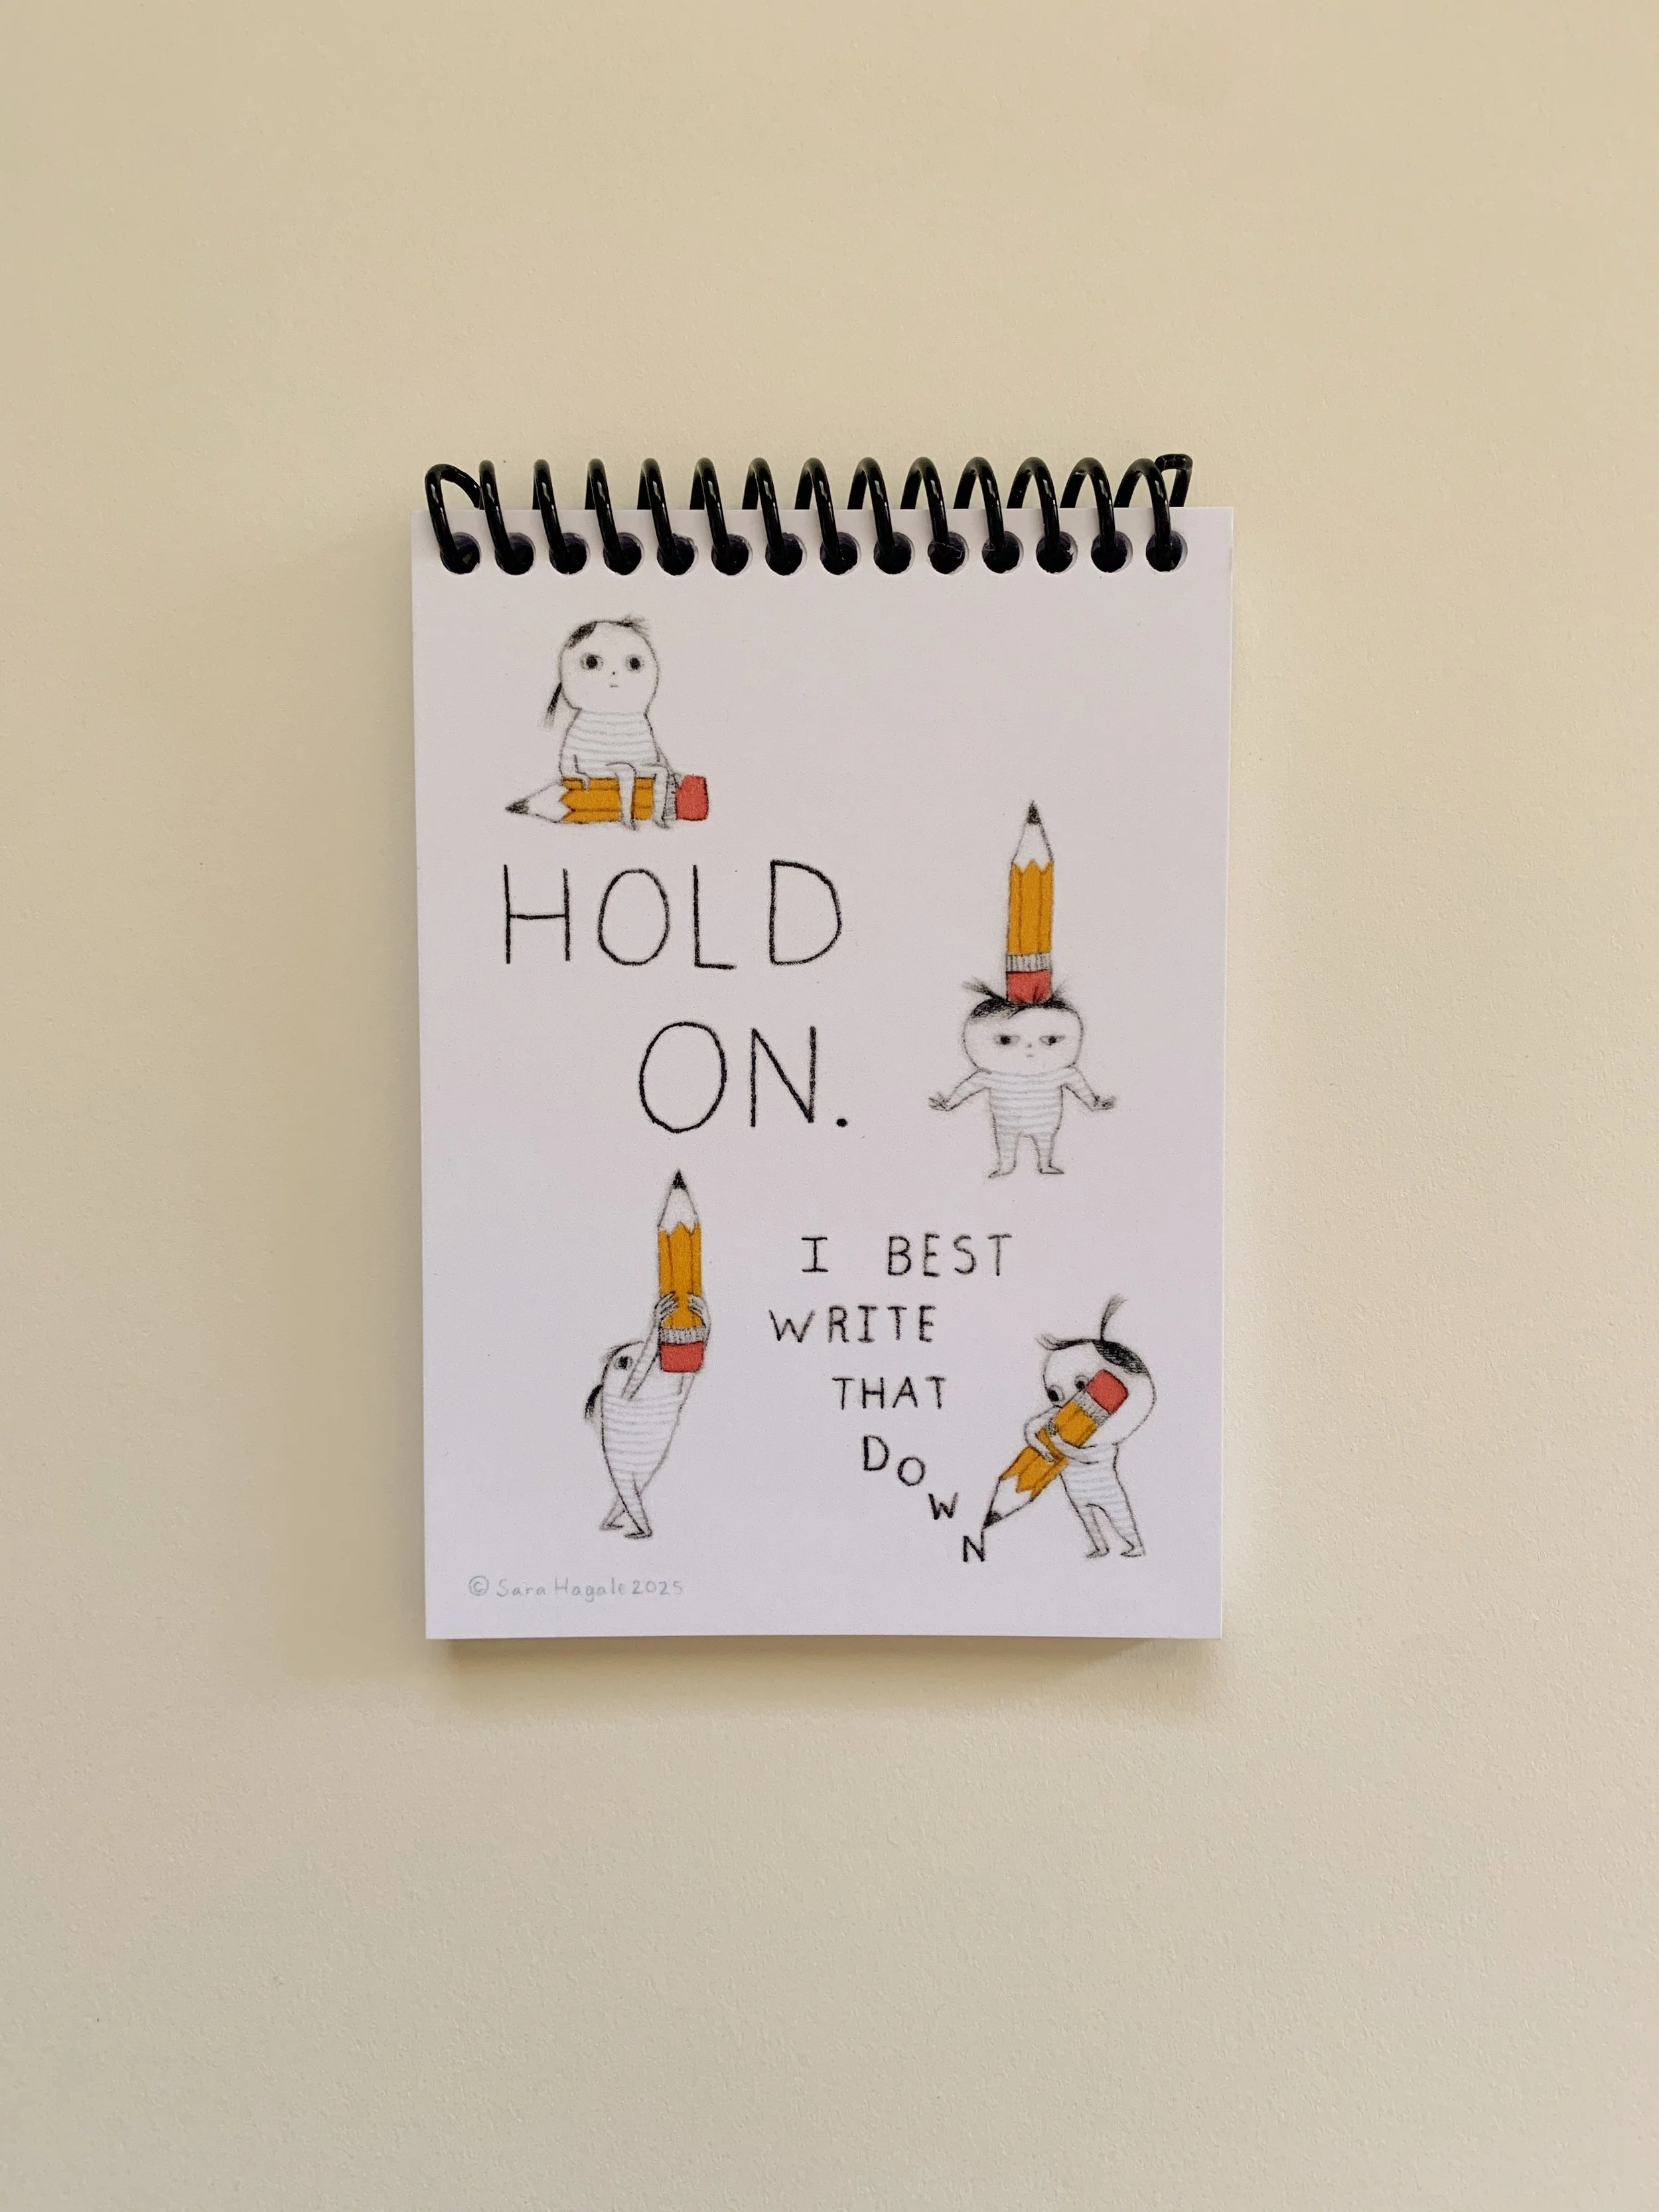 HOLD
ON.
I BEST
WRITE
THAT
DOWN
© Sara Hagale 2025